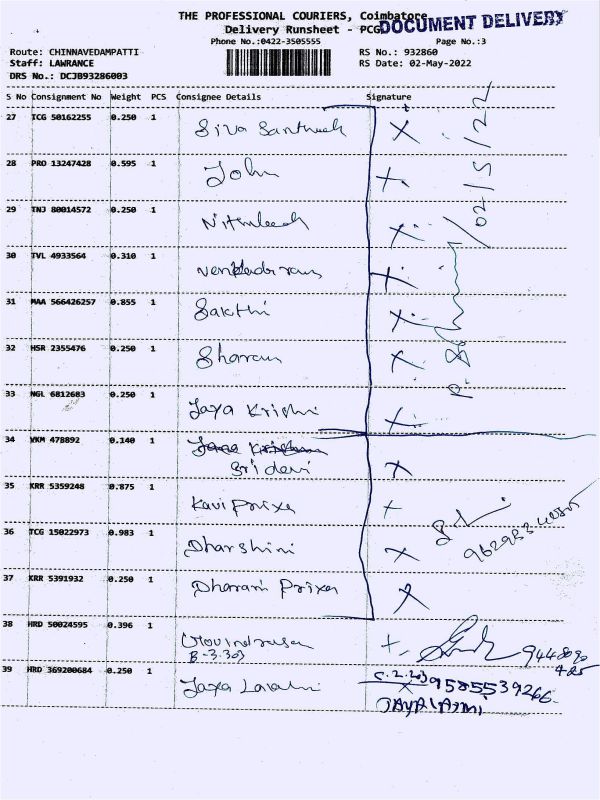 THE PROFESSIONAL COURIERS, Coimbatore
DOCUMENT DELIVERY
Delivery Runsheet - PCG
Phone No.:0422-3505555 Page No.:3
Route: CHINNAVEDAMPATTI RS No.: 932860
Staff: LAWRANCE RS Date: 02-May-2022
DRS No.: DCJB93286003
S No Consignment No Weight PCS Consignee Details Signature
27 TCG 50162255 0.250 1 X
28 PRO 13247428 0.595 1 John
29 TNJ 80014572 0.250 1
30 TVL 4933564 0.310 1
31 MAA 566426257 0.855 1 Sakthi
32 HSR 2355476 0.250 1 Sharan
33 NGL 6812683 0.250 1 Jaya Krishni
02/5/22
34 VKM 478892 0.140 1
Sri devi X
35 KRR 5359248 0.875 1 Kavi priya
36 TCG 15022973 0.983 1 Dharshini X
37 KRR 5391932 0.250 1 Dharani Priya X
38 HRD 50024595 0.396 1
B-3.303
39 HRD 369200684 0.250 1 C.2.203 9585539266